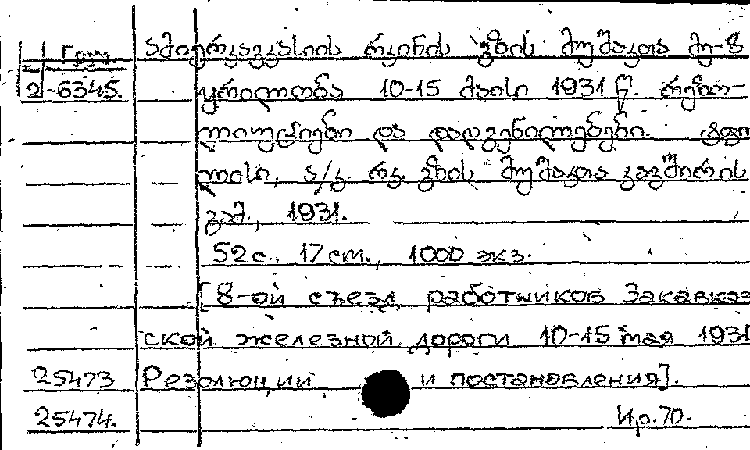 Груз ამიერკავკასიის რკინის გზის მუშაკთა მე-8
2-6345. ყრილობა 10-15 მაისი 1931 წ. რეზო-
ლიუციები და დადგენილებები. ტფი
ლისი, ა/კ. რკ. გზის მუშაკთა კავშირის
გამ., 1931.
52 с., 17 cm., 1000 экз.
[8-ой съезд работников Закавказ
ской железной дороги 10-15 мая 1931
25473 Резолюции и постановления].
25474. Ир.70.